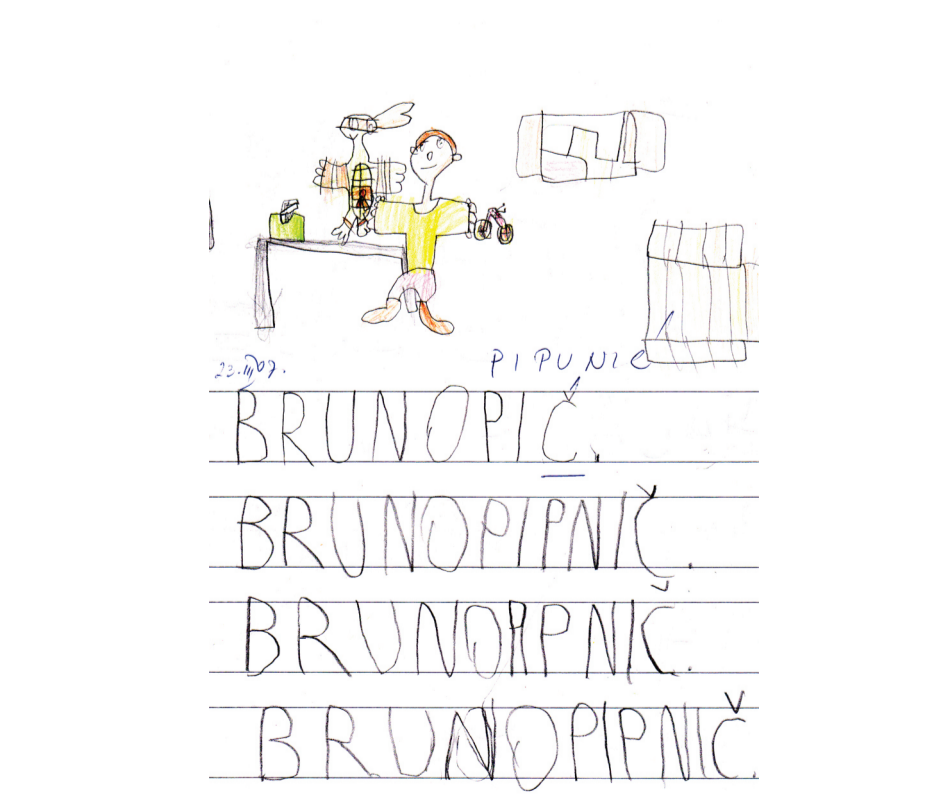 23.III 07. PIPUNIĆ
BRUNOPIČ.
BRUNOPIPNIČ.
BRUNOPIPNIČ.
BRUNOPIPNIČ.